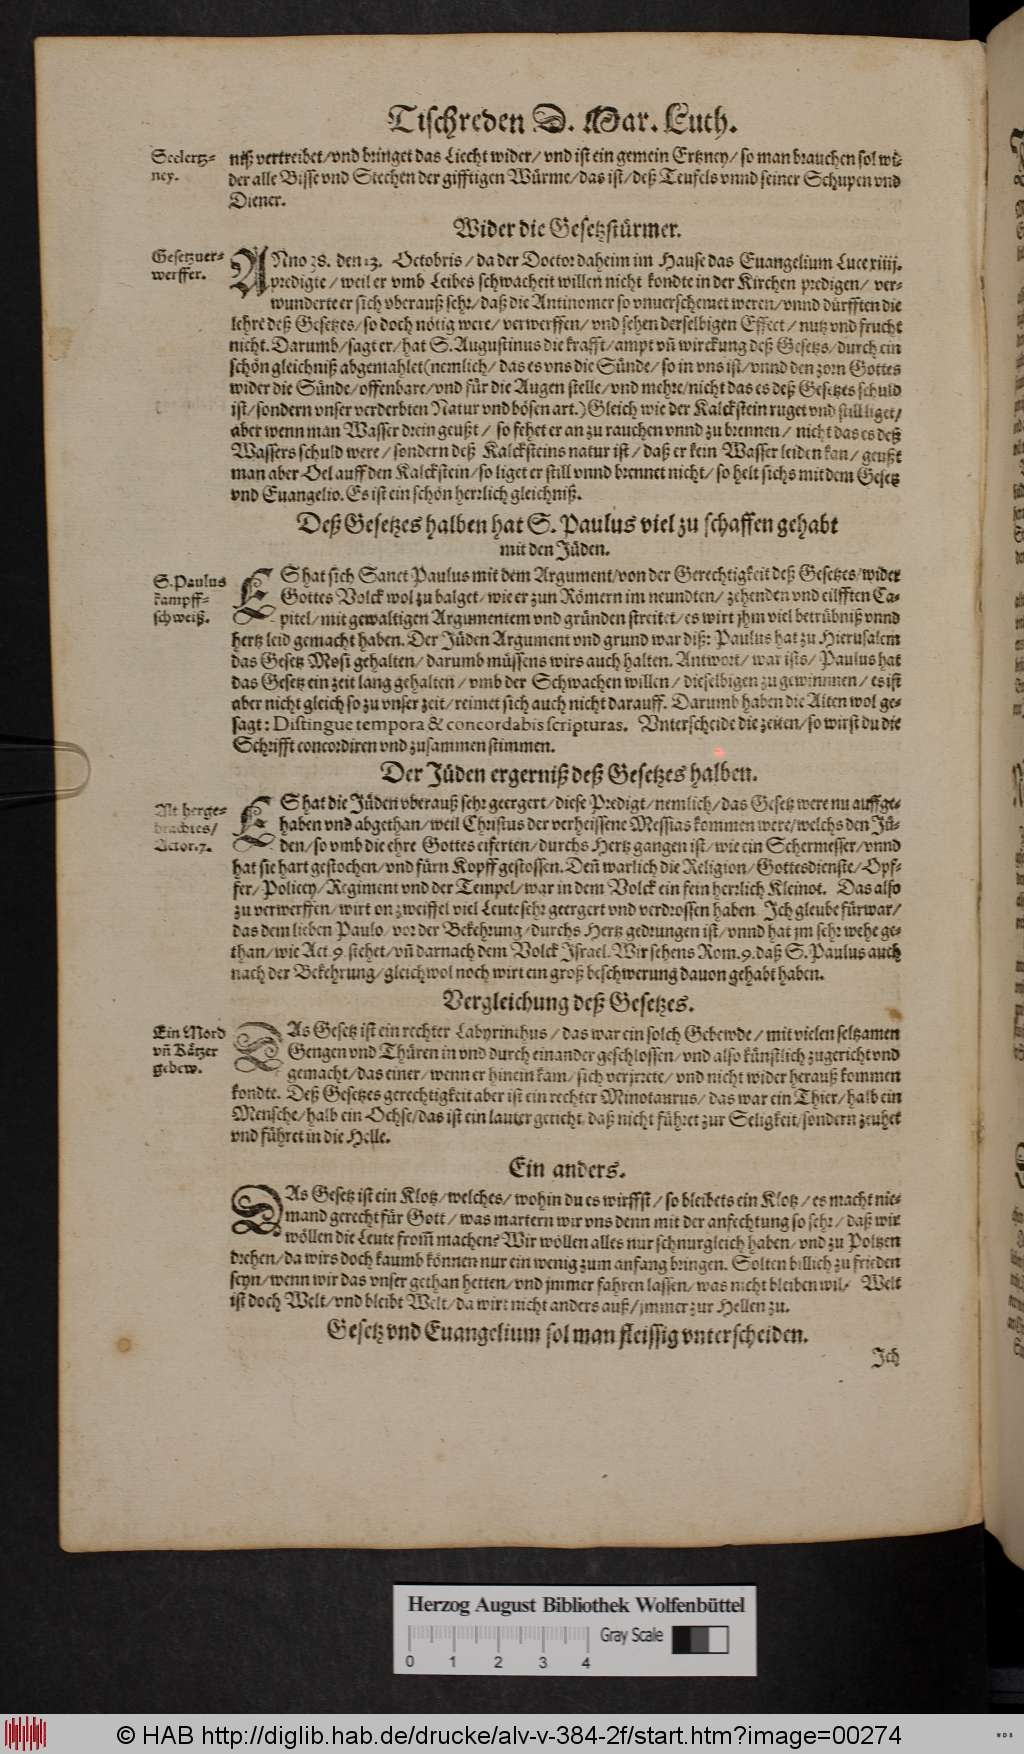 Tischreden D. Mar. Luth.
Seelertz-
ney.
niß vertreibet/vnd bringet das Liecht wider/ vnd ist ein gemein Ertzney/ so man brauchen sol wi-
der alle Bisse vnd Stechen der gifftigen Würme/das ist/deß Teufels vnnd seiner Schupen vnd
Diener.
Wider die Gesetzstürmer.
Gesetzuer-
werffer.
ANno 38. den 13. Octobris/ da der Doctor daheim im Hause das Euangelium Luce xiiij.
predigte/ weil er vmb Leibes schwacheit willen nicht kondte in der Kirchen predigen/ ver-
wunderte er sich vberauß sehr/ daß die Antinomer so vnuerschemet weren/ vnnd dürfften die
lehre deß Gesetzes/so doch nötig were/ verwerffen/ vnd sehen derselbigen Effect/ nutz vnd frucht
nicht. Darumb/sagt er/hat S. Augustinus die krafft/ampt vñ wirckung deß Gesetzs/durch ein
schön gleichniß abgemahlet(nemlich/das es vns die Sünde/so in vns ist/vnnd den zorn Gottes
wider die Sünde/offenbare/vnd für die Augen stelle/vnd mehre/nicht das es deß Gesetzes schuld
ist/sondern vnser verderbten Natur vnd bösen art.) Gleich wie der Kalckstein ruget vnd still liget/
aber wenn man Wasser drein geußt/ so fehet er an zu rauchen vnnd zu brennen/ nicht das es deß
Wassers schuld were/ sondern deß Kalcksteins natur ist/ daß er kein Wasser leiden kan/ geußt
man aber Oel auff den Kalckstein/so liget er still vnnd brennet nicht/ so helt sichs mit dem Gesetz
vnd Euangelio. Es ist ein schön herrlich gleichniß.
Deß Gesetzes halben hat S. Paulus viel zu schaffen gehabt
mit den Jüden.
S. Paulus
kampff-
schweiß.
ES hat sich Sanct Paulus mit dem Argument/von der Gerechtigkeit deß Gesetzes/wider
Gottes Volck wol zu balget/ wie er zun Römern im neundten/ zehenden vnd eilfften Ca-
pitel/mit gewaltigen Argumentem vnd gründen streitet/es wirt jhm viel betrübniß vnnd
hertz leid gemacht haben. Der Jüden Argument vnd grund war diß: Paulus hat zu Hierusalem
das Gesetz Mosi gehalten/darumb müssens wirs auch halten. Antwort/war ists/ Paulus hat
das Gesetz ein zeit lang gehalten/ vmb der Schwachen willen/ dieselbigen zu gewinnnen/ es ist
aber nicht gleich so zu vnser zeit/reimet sich auch nicht darauff. Darumb haben die Alten wol ge-
sagt: Distingue tempora & concordabis scripturas. Vnterscheide die zeiten/so wirst du die
Schrifft concordiren vnd zusammen stimmen.
Der Jüden ergerniß deß Gesetzes halben.
Alt herge-
brachtes/
Actor.7.
ES hat die Jüden vberauß sehr geergert/diese Predigt/nemlich/das Gesetz were nu auffge-
haben vnd abgethan/weil Christus der verheissene Messias kommen were/welchs den Jü-
den/so vmb die ehre Gottes eiferten/durchs Hertz gangen ist/wie ein Schermesser/vnnd
hat sie hart gestochen/vnd fürn Kopff gestossen. Deñ warlich die Religion/Gottesdienste/Opf-
fer/Policey/Regiment vnd der Tempel/war in dem Volck ein fein herrlich Kleinot. Das also
zu verwerffen/wirt on zweiffel viel Leute sehr geergert vnd verdrossen haben. Ich gleube fürwar/
das dem lieben Paulo/vor der Bekehrung/durchs Hertz gedrungen ist/vnnd hat jm sehr wehe ge-
than/wie Act.9. stehet/vñ darnach dem Volck Israel. Wir sehens Rom.9.daß S. Paulus auch
nach der Bekehrung/gleichwol noch wirt ein groß beschwerung dauon gehabt haben.
Vergleichung deß Gesetzes.
Ein Mord
vñ Kätzer
gebew.
DAs Gesetz ist ein rechter Labyrinthus/ das war ein solch Gebewde/ mit vielen seltzamen
Gengen vnd Thüren in vnd durch einander geschlossen/vnd also künstlich zugericht vnd
gemacht/das einer/wenn er hinein kam/sich verjrrete/vnd nicht wider herauß kommen
kondte. Deß Gesetzes gerechtigkeit aber ist ein rechter Minotaurus/ das war ein Thier/halb ein
Mensche/halb ein Ochse/das ist ein lauter geticht/daß nicht führet zur Seligkeit/sondern zeuhet
vnd führet in die Helle.
Ein anders.
DAs Gesetz ist ein Klotz/welches/wohin du es wirffst/so bleibets ein Klotz/es macht nie-
mand gerecht für Gott/was martern wir vns denn mit der anfechtung so sehr/daß wir
wöllen die Leute from̃ machen? Wir wöllen alles nur schnurgleich haben/vnd zu Poltzen
drehen/da wirs doch kaumb können nur ein wenig zum anfang bringen. Solten billich zu frieden
seyn/wenn wir das vnser gethan hetten/vnd jmmer fahren lassen/was nicht bleiben wil/ Welt
ist doch Welt/vnd bleibt Welt/da wirt nicht anders auß/jmmer zur Hellen zu.
Gesetz vnd Euangelium sol man fleissig vnterscheiden.
Ich
Herzog August Bibliothek Wolfenbüttel
Gray Scale
0 1 2 3 4
© HAB http://diglib.hab.de/drucke/alv-v-384-2f/start.htm?image=00274